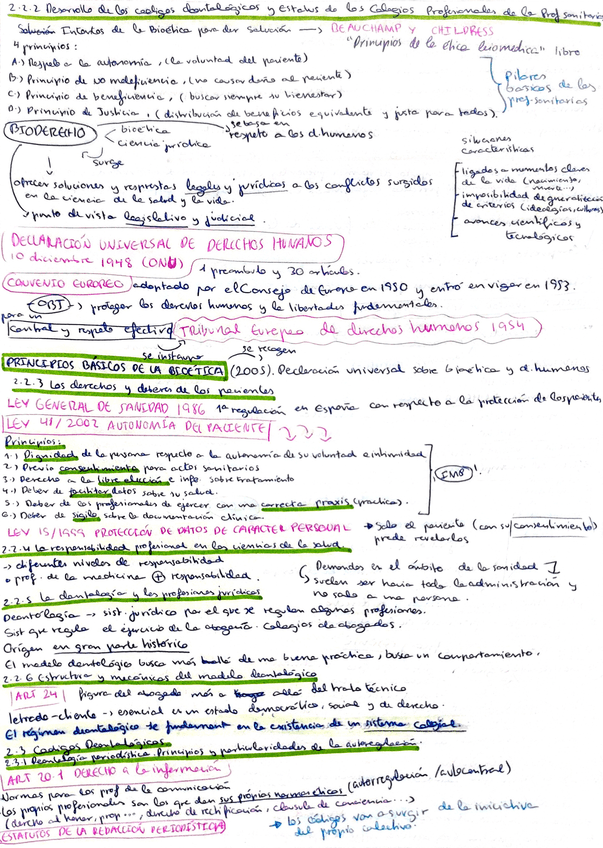 2.2.2 Desarrollo de los codigos deontológicos y estatus de los Colegios Profesionales de la Prof sanitaria
Solución Intentos de la Bioética para dar solución → BEAUCHAMP Y CHILDRESS
"Principios de la etica biomedica" libro
4 principios:
A.) Respeto a la autonomía, (la voluntad del paciente)
B.) Principio de no maleficiencia, (no causar daño al paciente)
C.) Principio de beneficiencia, (buscar siempre su bienestar)
D.) Principio de Justicia, (distribución de beneficios equivalente y justa para todos).
Pilares basicos de las prof. sanitarias
BIODERECHO
bioética
ciencia jurídica
se basa en
respeto a los d. humanos
surge
ofrecer soluciones y respuestas legales y jurídicos a los conflictos surgidos
en la ciencia de la salud y la vida.
punto de vista legislativo y judicial.
situaciones
características
- ligados a momentos claves
de la vida (nacimiento,
muerte...)
- imposibilidad de generalización
de criterios (ideologías, cultura)
- avances científicos y
tecnológicos
DECLARACIÓN UNIVERSAL DE DERECHOS HUMANOS
10 diciembre 1948 (ONU)
1 preambulo y 30 artículos.
CONVENIO EUROPEO adoptado por el Consejo de Europa en 1950 y entró en vigor en 1953.
OBJ → proteger los derechos humanos y la libertades fundamentales.
para un
control y respeto efectivo
Tribunal Europeo de derechos humanos 1954
se instauro
se recogen
PRINCIPIOS BÁSICOS DE LA BIOÉTICA (2005). Declaración universal sobre bioetica y d. humanos
2.2.3 Los derechos y deberes de los pacientes
LEY GENERAL DE SANIDAD 1986 1ª regulación en España con respecto a la protección de los pacientes
LEY 41/2002 AUTONOMÍA DEL PACIENTE
Principios:
1.) Dignidad de la persona respecto a la autonomía de su voluntad e intimidad
2.) Previo consentimiento para actos sanitarios
3.) Derecho a la libre elección e info sobre tratamiento
4.) Deber de facilitar datos sobre su salud.
5.) Deber de los profesionales de ejercer con una correcta praxis (practica).
6.) Deber de sigilo sobre la documentación clínica.
IMP!
LEY 15/1999 PROTECCIÓN DE DATOS DE CARACTER PERSONAL → Solo el paciente (con su consentimiento)
puede revelarlos
2.2.4 La responsabilidad profesional en las ciencias de la salud.
→ diferentes niveles de responsabilidad
• prof. de la medicina ⊕ responsabilidad.
Demandas en el ámbito de la sanidad
suelen ser hacia toda la administración y
no solo a una persona.
2.2.5 La deontología y las profesiones jurídicas
Deontología → sist. jurídico por el que se regulan algunas profesiones.
Sist que regula el ejercicio de la abogacía. Colegios de abogados.
Orígen en gran parte histórico
El modelo deontológico busca más allá de una buena práctica, busca un comportamiento.
2.2.6 Estructura y mecánicas del modelo deontológico
ART 24 Figura del abogado más allá del trato técnico
letrado-cliente → esencial es un estado democrático, social y de derecho.
El régimen deontológico se fundament en la existencia de un sistema colegial.
2.3 Codigos Deontológicos
2.3.1 Deontología periodística. Principios y particularidades de la autoregulación.
ART 20.1 DERECHO a la información
Normas para los prof de la comunicación
Los propios profesionales son los que dan sus própias normas éticas (autorregulación/autocontrol)
(derecho al honor, prop..., derecho de rectificación, clausula de conciencia...)
→ Los códigos van a surgir de la iniciativa
del própio colectivo.
ESTATUTOS DE LA REDACCIÓN PERIODÍSTICA